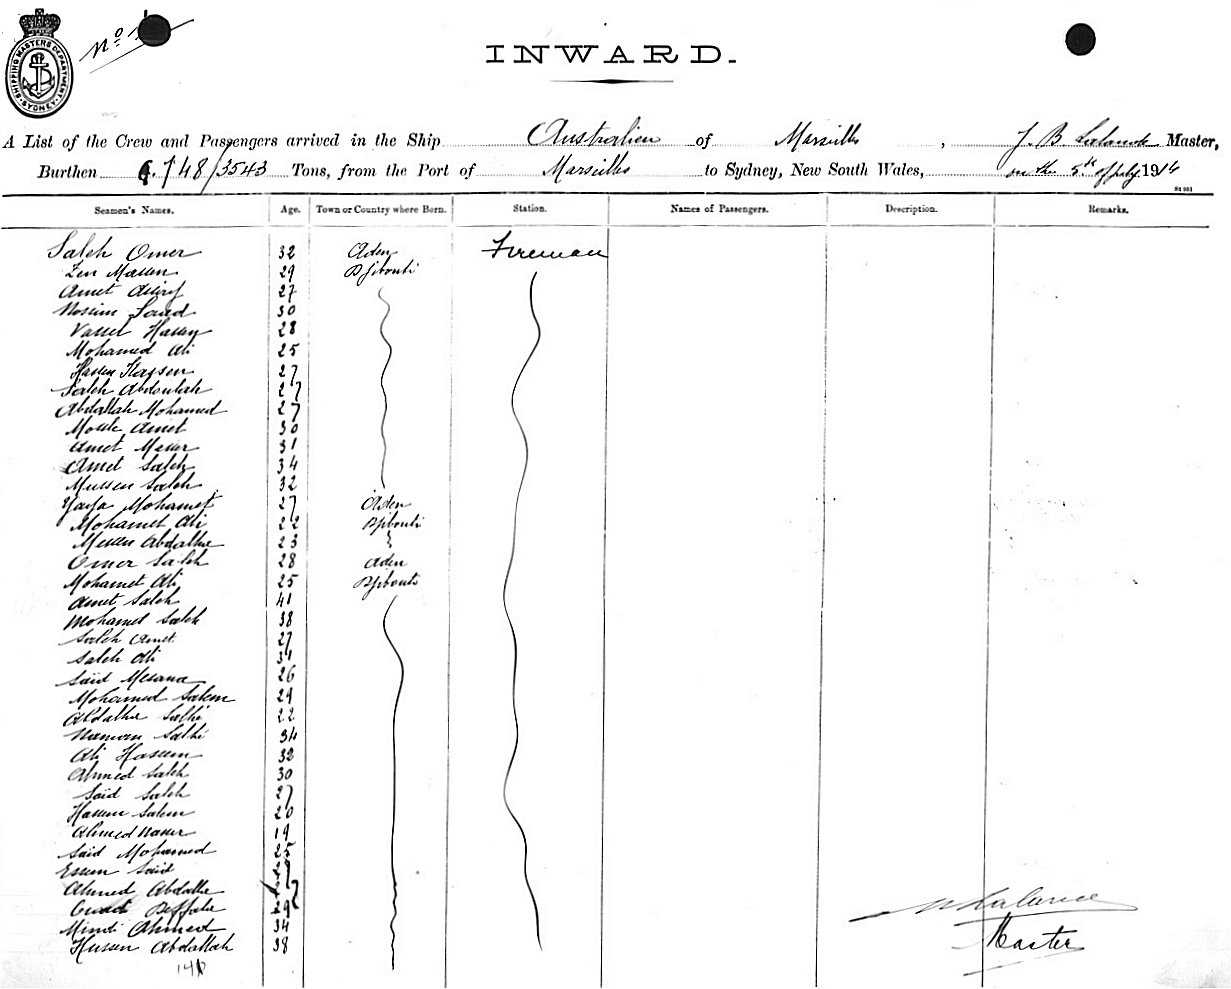 No 1
SHIPPING MASTERS DEPARTMENT SYDNEY
INWARD.
A List of the Crew and Passengers arrived in the Ship Australien of Marseilles, J. B. Master,
Burthen 6.748/3543 Tons, from the Port of Marseilles to Sydney, New South Wales, on the 5th of July 1914
Seamen's Names. Age. Town or Country where Born. Station. Names of Passengers. Description. Remarks.
Saleh Omer 32 Aden Fireman
Zen 29 Djibouti
Amet 27
Nossim Saad 30
Vassel Hassen 28
Mohamed Ali 25
Hassen Kassen 27
Saleh Abdoulah 27
Abdallah Mohamed 27
Amet 30
Amet 31
Amet Saleh 34
Mussen Saleh 32
Yaya Mohamet 27 Aden
Mohamet Ali 22 Djibouti
Abdallie 23
Omer Saleh 28 Aden
Mohamet Ali 25 Djibouti
Amet Saleh 41
Mohamed Saleh 38
Saleh Amet 27
Saleh Ali 34
Said 26
Mohamed Salem 29
Abdallie Salhi 22
Salhi 34
Ali Hassen 32
Ahmed Saleh 30
Said Saleh 27
Hassen Salem 20
Ahmed Nasser 19
Said Mohamed
Essen Said
Ahmed Abdallie
Ahmed 34
Hussen Abdallah 38
Master